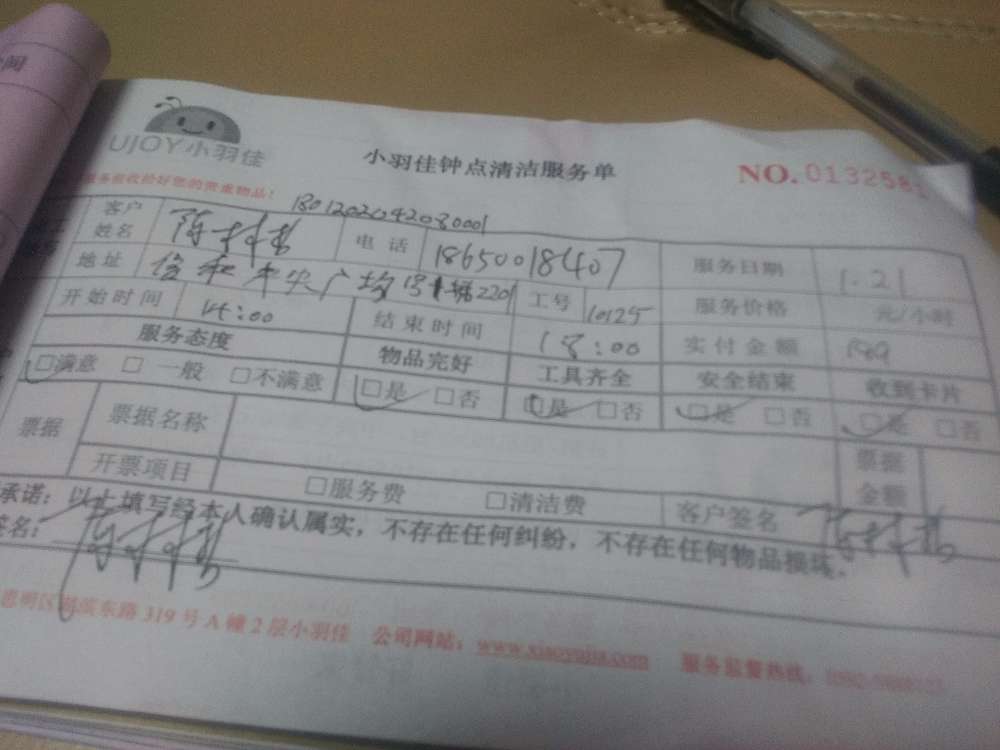 间
UJOY小羽佳
小羽佳钟点清洁服务单
NO. 013258
服务前收拾好您的贵重物品!
1801202042080001
客户姓名 电话 18650018407 服务日期 1.21
地址 央广场 2201 工号 10125 服务价格 元/小时
开始时间 14:00 结束时间 18:00 实付金额
服务态度 物品完好 工具齐全 安全结束 收到卡片
□满意 □一般 □不满意 □是 □否 □是 □否 □是 □否 □是 □否
票据 票据名称 票据金额
开票项目 □服务费 □清洁费 客户签名
承诺：以上填写经本人确认属实，不存在任何纠纷，不存在任何物品损坏。
签名：
思明区 东路319号A幢2层小羽佳 公司网站：www.xiaoyujia.com 服务监督热线：